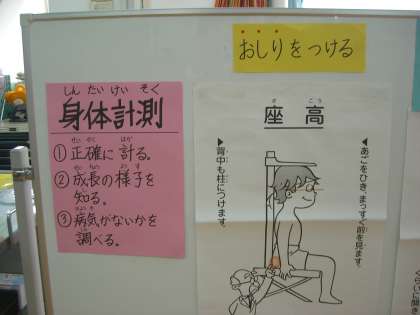 おしりをつける
しんたいけいそく
身体計測
せいかく はか
①正確に計る。
せいちょう ようす
②成長の様子を
し
知る。
びょうき
③病気がないかを
しら
調べる。
ざ こう
座高
▼あごをひき、まっすぐ前を見ます。
▼背中も柱につけます。